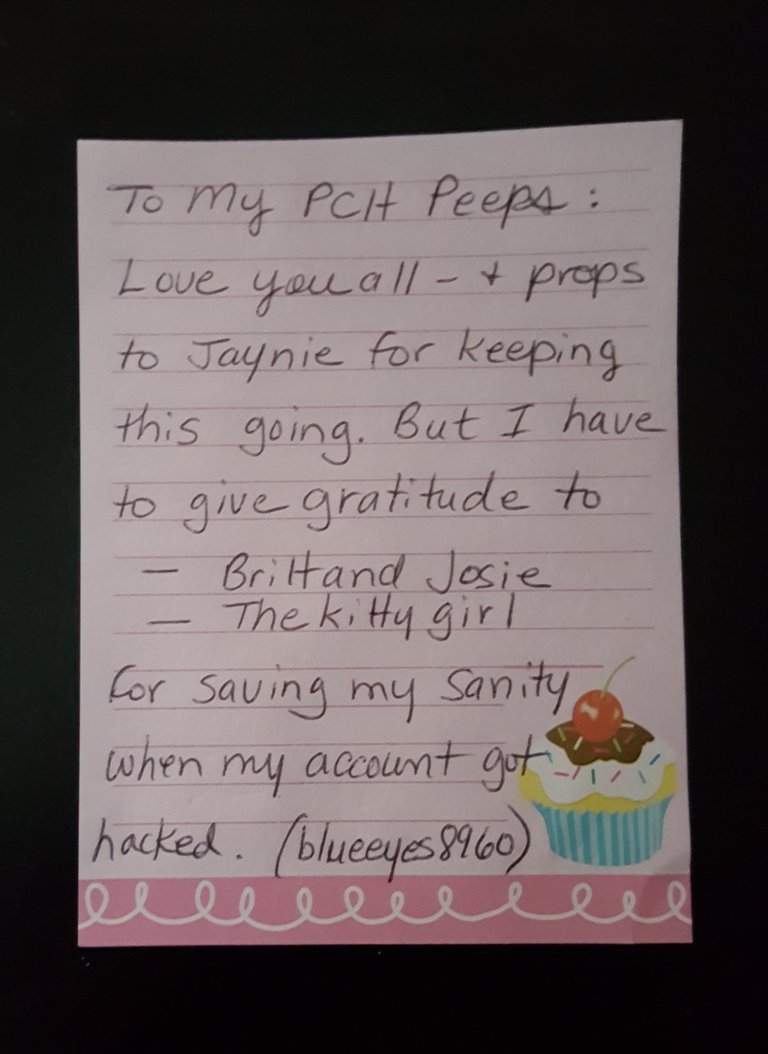 To my PCH Peeps:
Love you all - + props
to Jaynie for keeping
this going. But I have
to give gratitude to
— Brittand Josie
— The kitty girl
for saving my sanity
when my account got
hacked. (blueeyes8960)